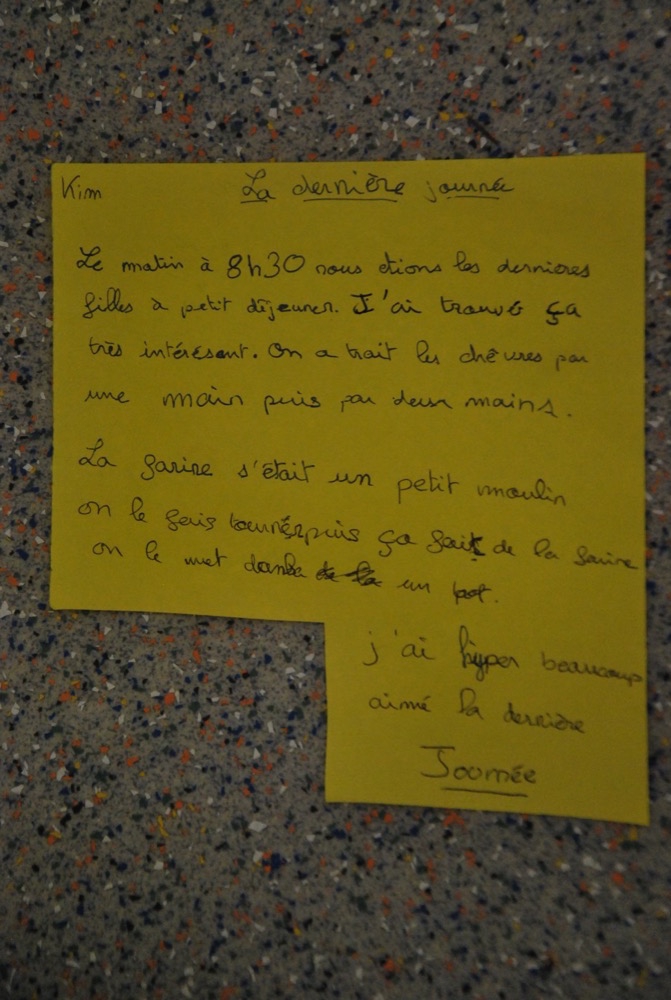 Kim
La dernière journée
Le matin à 8h30 nous étions les dernières
filles à petit déjeuner. J'ai trouvé ça
très intérésent. On a trait les chêvres par
une main puis par deux mains.
La farine s'était un petit moulin
on le fais tournér puis ça fait de la farine
on le met dans un pot.
j'ai hyper beaucoup
aimé la dernière
Journée